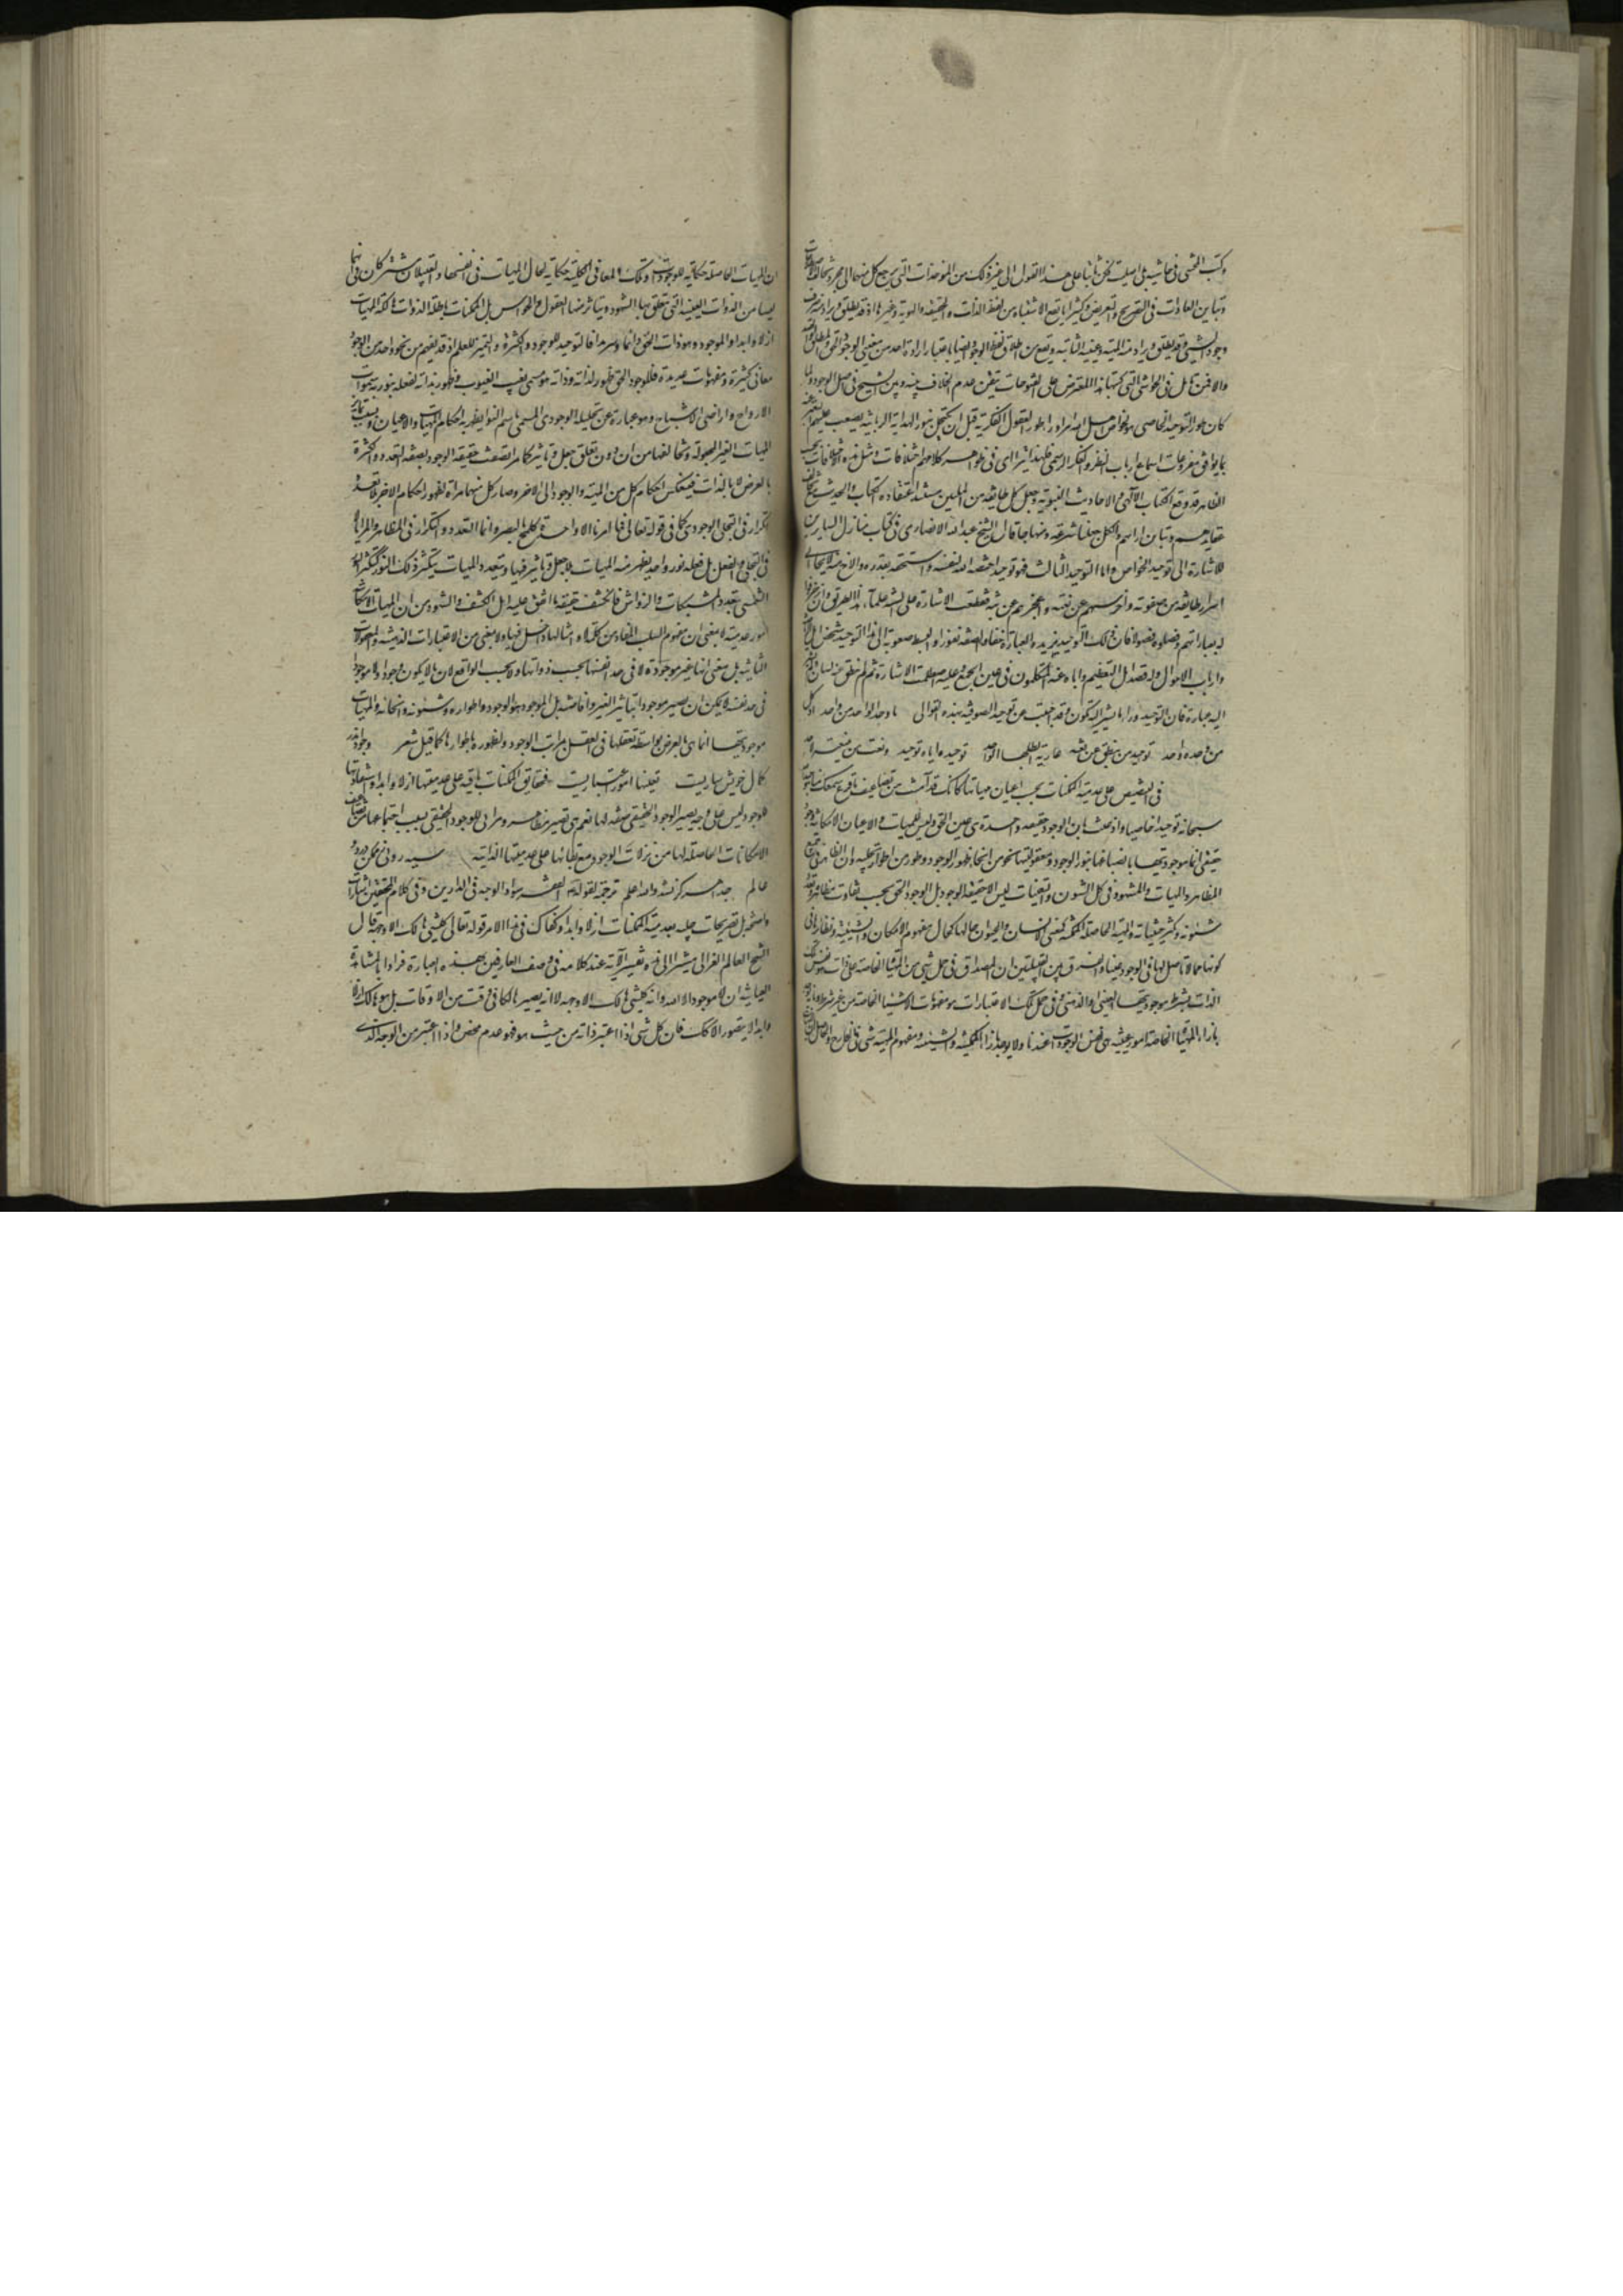 وكتب المحشى فى حاشيه بل اصلت لكن ثابتا على هذا القول الى غير ذلك من المؤخذات التى يرجع كل منها الى مجرد تخالف اصطلاحات
وتباين العادات فى التصريح والتعريض وكثيرا ما يقع الاشتباه من لفظ الذات والحقيقه والهوية وغيرها اذ قد يطلق ويراد منه صرف
وجود الشىء وقد يطلق ويراد منه المهية وعينه الثابته ويقع من اطلاق لفظ الوجود ايضا باعتبار ارادة احد من معنيى الوجود الحق والمطلق
والا فمن تامل فى الحواشى التى كتبها هذا المعترض على الفتوحات تيقن عدم الخلاف بينه وبين الشيخ فى اصل الوجود ولما
كان طور التوحيد الخاصى هو لخواص اهل الله امرا وراء طور العقول الفكرية قبل ان يكتحل بنور الهداية الربانية يصعب عليهم التعبير عنه
بما يوافق مقروعات اسماع ارباب النظر والفكر الرسمى فلهذا يترااى فى ظواهر كلامهم اختلافات ومثل هذه الاختلافات بحسب
الظاهر قد وقع فى الكتاب الالهى والاحاديث النبوية وجعل كل طايفه من المليين مستند اعتقاده الكتاب والحديث مع تخالف
عقايدهم وتباين اراءهم ولكل جعلنا شرعة ومنهاجا قال الشيخ عبد الله الانصارى فى كتاب منازل السايرين
للاشارة الى توحيد الخواص واما التوحيد الثالث فهو توحيد اختصه الله لنفسه واستحقه بقدره والاح منه لايحا الى
اسرار طايفه من صفوته واخرسهم عن نعته واعجزهم عن بثه فقطعت الاشارة على السنه علماء هذا الطريق وان زخرفوا
له بعباراتهم وفصلوه فصولا فان ذلك التوحيد يزيده العبارة خفاء والصفه نفورا والبسط صعوبة الى هذا التوحيد شخص اهل الرياضة
وارباب الاحوال وله قصد اهل التعظيم واياه عنى المتكلمون فى عين الجمع وعليه اصطلمت الاشارة ثم لم ينطق عنه لسان ولم تشر
اليه عبارة فان التوحيد وراء ما يشير اليه مكون وقد اجبت عن توحيد الصوفيه بهذه القوافى ما وحد الواحد من واحد اذ كل
من وحده جاحد توحيد من ينطق عن نعته عارية ابطلها الواحد توحيده اياه توحيده ونعت من ينعته لاحد
فى التنصيص على عدمية الممكنات بحسب اعيان مهياتها كانك قد آمنت من تضاعيف ما قرع سمعك منا بتوحيد الله
سبحانه توحيدا خاصيا واذعنت بان الوجود حقيقه واحدة هى عين الحق وليس للمهيات والاعيان الامكانيه وجود
حقيقى انما موجوديتها بانصباغها بنور الوجود ومعقوليتها نحو من انحاء ظهور الوجود وطور من اطوار تجليه وان الظاهر فى جميع
المظاهر والمهيات والمشهود فى كل الشئون والتعينات ليس الا حقيقه الوجود بل الوجود الحق بحسب تفاوت مظاهره وتعدد
شئونه وتكثر حيثياته والمهية الخاصله الممكنه كمعنى الانسان والحيوان حالها كحال مفهوم الامكان والشيئية ونظائرها فى
كونها مما لا تاصل لها فى الوجود عينا والفرق بين القبيلتين ان المصداق فى حمل شىء من المهيات الخاصة على ذات هو نفس تلك
الذات بشرط موجوديتها العينى او الذهنى وفى حمل تلك الاعتبارات هو مفهومات الاشياء الخاصة من غير شرط وبانه يوجد
بازاء المهيات الخاصة امور عينيه هى نفس الوجودات عندنا ولا يوجد بازاء الممكنيه والشيئيه ومفهوم المهية شىء فى الخارج والحاصل
ان المهيات الخاصله حكاية للوجودات وتلك المعانى الكليه حكاية لحال المهيات فى انفسها والقبيلان مشتركان فى انهما
ليسا من الذوات العينيه التى تتعلق بها الشهود ويتاثر منها العقول والحواس بل الممكنات باطلة الذوات هالكة المهيات
ازلا وابدا والموجود هو ذات الحق دائما وسرمدا فالتوحيد للوجود والكثرة والتميز للعلم اذ قد يفهم من نحو واحد من الوجود
معانى كثيرة ومفهومات عديدة فللوجود الحق ظهور لذاته فى ذاته هو المسمى بغيب الغيوب وظهور بذاته لفعله ينور به سموات
الارواح واراضى الاشباح وهو عبارة عن تجليه الوجودى المسمى باسم النور يظهر به احكام المهيات والاعيان وبسبب تمايز
المهيات الغير المجعوله وتخالفها من دون تعلق جعل وتاثير كما مر اتصفت حقيقه الوجود بصفة التعدد والكثرة
بالعرض لا بالذات فينعكس احكام كل من المهية والوجود الى الاخر وصار كل منهما مرآة لظهور احكام الاخر بلا تعدد
تكرار فى التجلى الوجودى كما فى قوله تعالى وما امرنا الا واحدة كلمح بالبصر وانما التعدد والتكرار فى المظاهر والمرايا لا
فى التجلى والفعل بل فعله نور واحد يظهر منه المهيات بلا جعل وتاثير فيها وبتعدد المهيات يتكثر ذلك النور كتكثر نور
الشمس بتعدد المشبكات والرواشن فانكشف حقيقة ما اتفق عليه اهل الكشف والشهود من ان المهيات الامكانية
امور عدمية لا بمعنى ان مفهوم السلب المفاد من كلمة لا وامثالها داخل فيها ولا بمعنى من الاعتبارات الذهنيه والمعقولات
الثانيه بل بمعنى انها غير موجودة لا فى حد انفسها بحسب ذواتها ولا بحسب الواقع لان ما لا يكون وجودا ولا موجودا
فى حد نفسه لا يمكن ان يصير موجودا بتاثير الغير وافاضته بل الموجود هو الوجود واطواره وشئونه وانحائه والمهيات
موجوديتها انما هى بالعرض بواسطة تعلقها فى العقل بمراتب الوجود وتطوره باطوارها كما قيل شعر وجود اندر
كمال خويش ساريست تعينها امور اعتباريست فحقايق الممكنات باقيه على عدميتها ازلا وابدا واستفادتها
للوجود ليس على وجه يصير الوجود الحقيقى صفة لها نعم هى تصير مظاهر ومرائى للوجود الحقيقى بسبب اجتماعها من تضاعيف
الامكانات الحاصله لها من تنزلات الوجود مع بقائها على عدميتها الذاتيه سيه روئى ز ممكن در دو
عالم جدا هرگز نشد والله اعلم ترجمة لقوله ع الفقر سواد الوجه فى الدارين وفى كلام المحققين اشارات
واضحة بل تصريحات جليه بعدمية الممكنات ازلا وابدا وكفاك فى هذا الامر قوله تعالى كل شىء هالك الا وجهه قال
الشيخ العالم الغزالى مشيرا الى هذه تفسير الآية عند كلامه فى وصف العارفين بهذه العبارة فراوا بالمشاهدة
العيانيه ان لا موجود الا الله وانه كل شىء هالك الا وجهه لا انه يصير هالكا فى وقت من الاوقات بل هو هالك ازلا
وابدا لا يتصور الا كذلك فان كل شىء اذا اعتبر ذاته من حيث هو فهو عدم محض واذا اعتبر من الوجه الذى